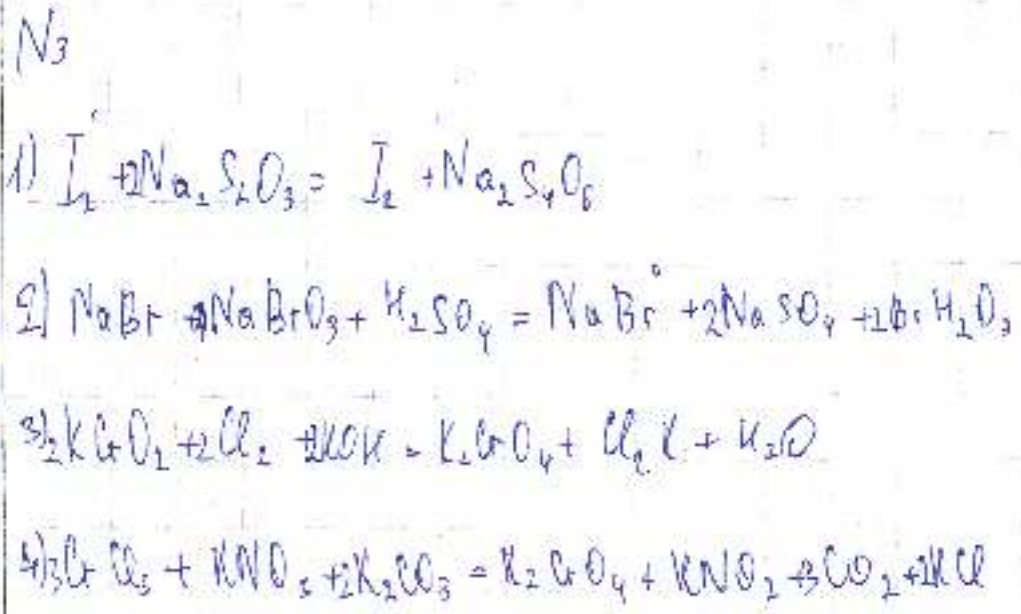 N3
1) I₂ + 2Na₂S₂O₃ = I₂ + Na₂S₄O₆
2) NaBr + NaBrO₃ + H₂SO₄ = NaBr + 2NaSO₄ + 2BrH₂O₃
3) 2KCrO₂ + 2Cl₂ + 2KOH = K₂CrO₄ + Cl₂K + H₂O
4) 3CrCl₃ + KNO₃ + 2K₂CO₃ = K₂CrO₄ + KNO₂ + 3CO₂ + 2KCl